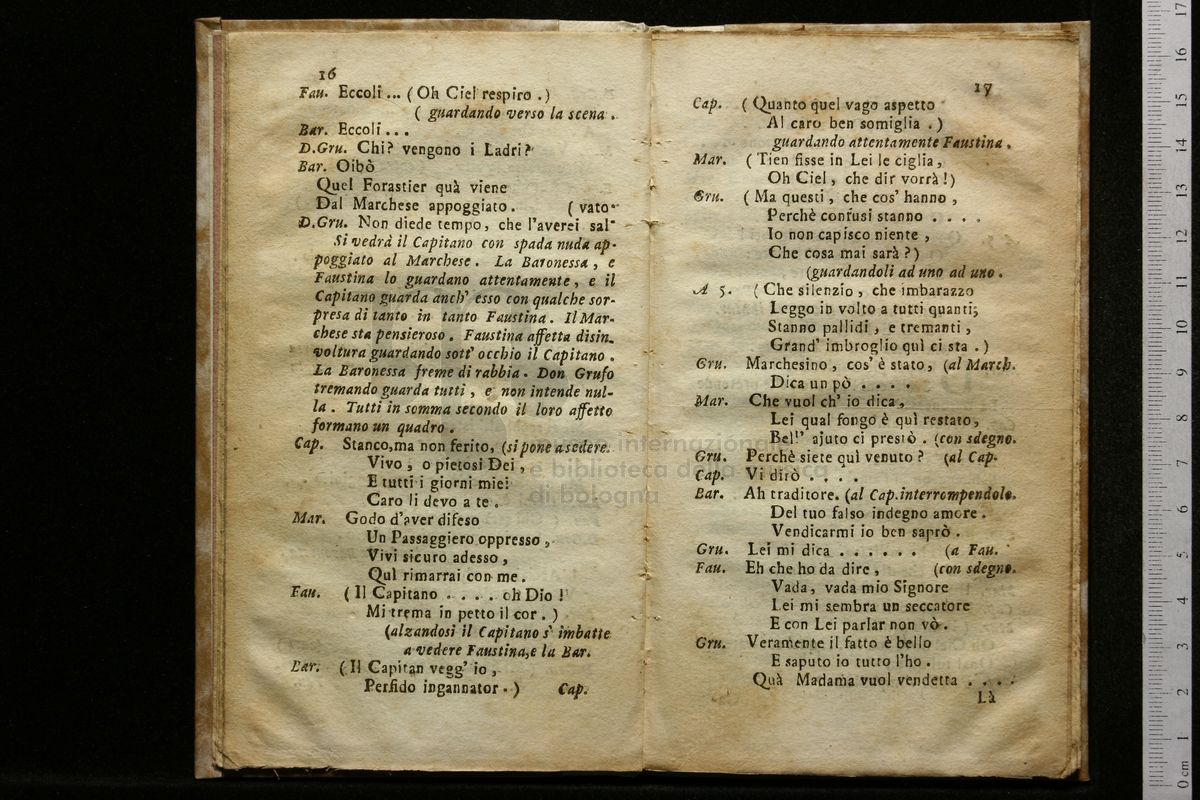 16
Fau. Eccoli ... ( Oh Ciel respiro . )
( guardando verso la scena .
Bar. Eccoli ...
D.Gru. Chi? vengono i Ladri?
Bar. Oibò
Quel Forastier quà viene
Dal Marchese appoggiato. ( vato
D.Gru. Non diede tempo, che l'averei sal-
Si vedrà il Capitano con spada nuda ap-
poggiato al Marchese . La Baronessa , e
Faustina lo guardano attentamente, e il
Capitano guarda anch' esso con qualche sor-
presa di tanto in tanto Faustina . Il Mar-
chese sta pensieroso . Faustina affetta disin-
voltura guardando sott' occhio il Capitano .
La Baronessa freme di rabbia . Don Grufo
tremando guarda tutti , e non intende nul-
la . Tutti in somma secondo il loro affetto
formano un quadro .
Cap. Stanco, ma non ferito, (si pone a sedere.
Vivo , o pietosi Dei ,
E tutti i giorni miei
Caro li devo a te .
Mar. Godo d'aver difeso
Un Passaggiero oppresso ,
Vivi sicuro adesso ,
Quì rimarrai con me .
Fau. ( Il Capitano . . . . oh Dio !
Mi trema in petto il cor . )
(alzandosi il Capitano s' imbatte
a vedere Faustina, e la Bar.
Bar. ( Il Capitan vegg' io ,
Perfido ingannator . ) Cap.
17
Cap. ( Quanto quel vago aspetto
Al caro ben somiglia . )
guardando attentamente Faustina .
Mar. ( Tien fisse in Lei le ciglia ,
Oh Ciel , che dir vorrà ! )
Gru. ( Ma questi , che cos' hanno ,
Perchè confusi stanno . . . .
Io non capisco niente ,
Che cosa mai sarà ? )
(guardandoli ad uno ad uno .
A 5. ( Che silenzio , che imbarazzo
Leggo in volto a tutti quanti;
Stanno pallidi , e tremanti ,
Grand' imbroglio quì ci sta . )
Gru. Marchesino , cos' è stato, (al March.
Dica un pò . . . .
Mar. Che vuol ch' io dica ,
Lei qual fongo è quì restato,
Bell' ajuto ci prestò . (con sdegno.
Gru. Perchè siete quì venuto ? (al Cap.
Cap. Vi dirò . . . .
Bar. Ah traditore. (al Cap. interrompendolo.
Del tuo falso indegno amore .
Vendicarmi io ben saprò .
Gru. Lei mi dica . . . . . . (a Fau.
Fau. Eh che ho da dire , (con sdegno.
Vada, vada mio Signore
Lei mi sembra un seccatore
E con Lei parlar non vò .
Gru. Veramente il fatto è bello
E saputo io tutto l'ho .
Quà Madama vuol vendetta . . . .
Là
internazionale
e biblioteca della musica
di bologna
17
16
15
14
13
12
11
10
9
8
7
6
5
4
3
2
1
0 cm